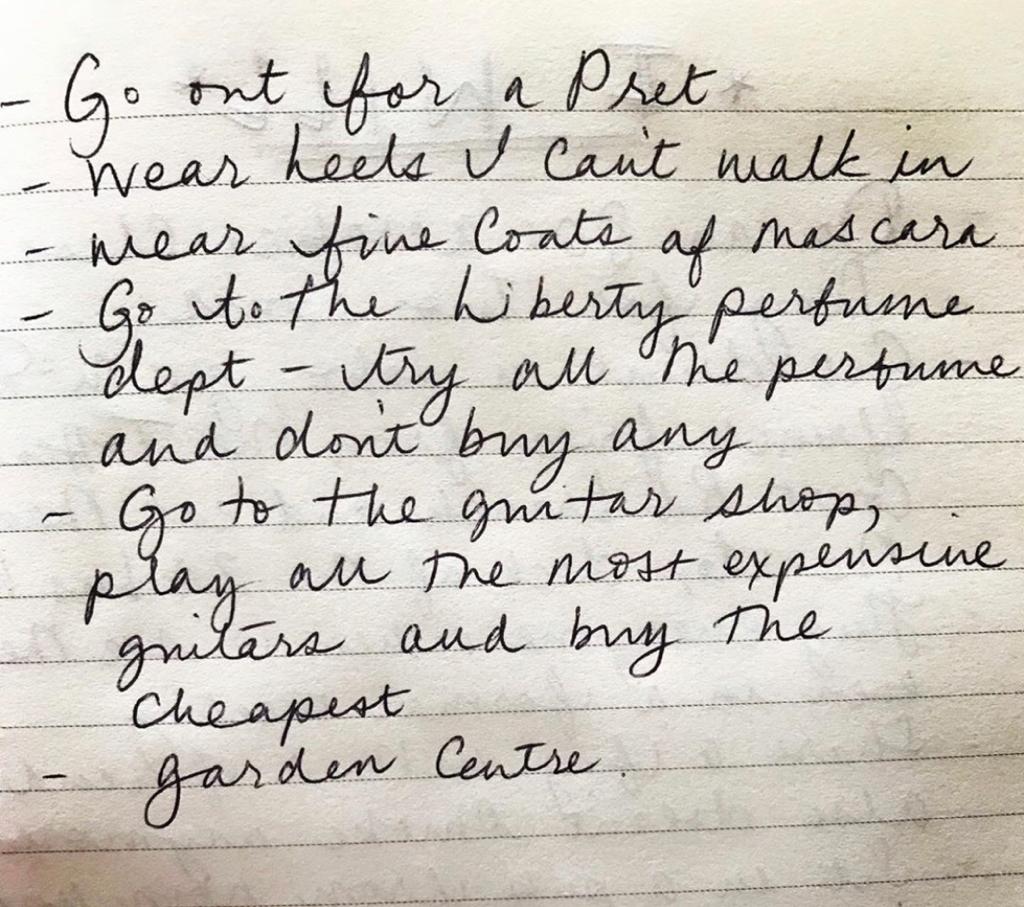 - Go out for a Pret
- wear heels I can't walk in
- wear five coats of mascara
- Go to the Liberty perfume
dept - try all the perfume
and don't buy any
- Go to the guitar shop,
play all the most expensive
guitars and buy the
cheapest
- garden centre.